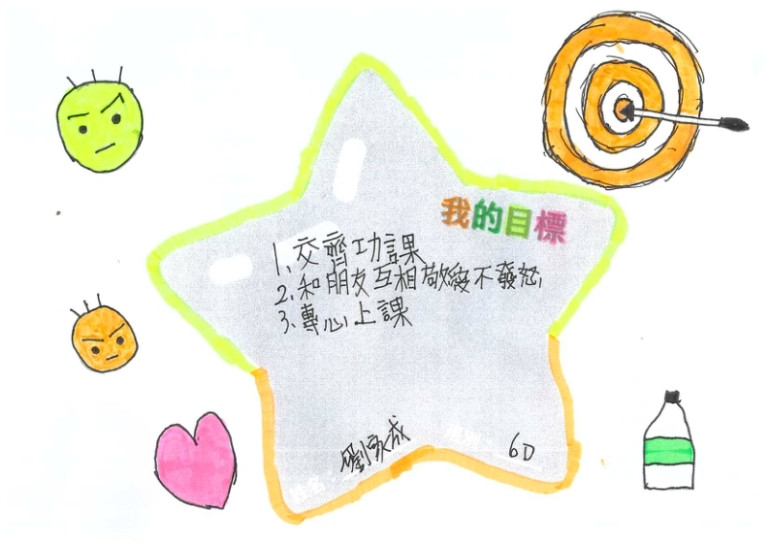 我的目標
1、交齊功課
2、和朋友互相敬愛不發怒
3、專心上課
劉家成
6D